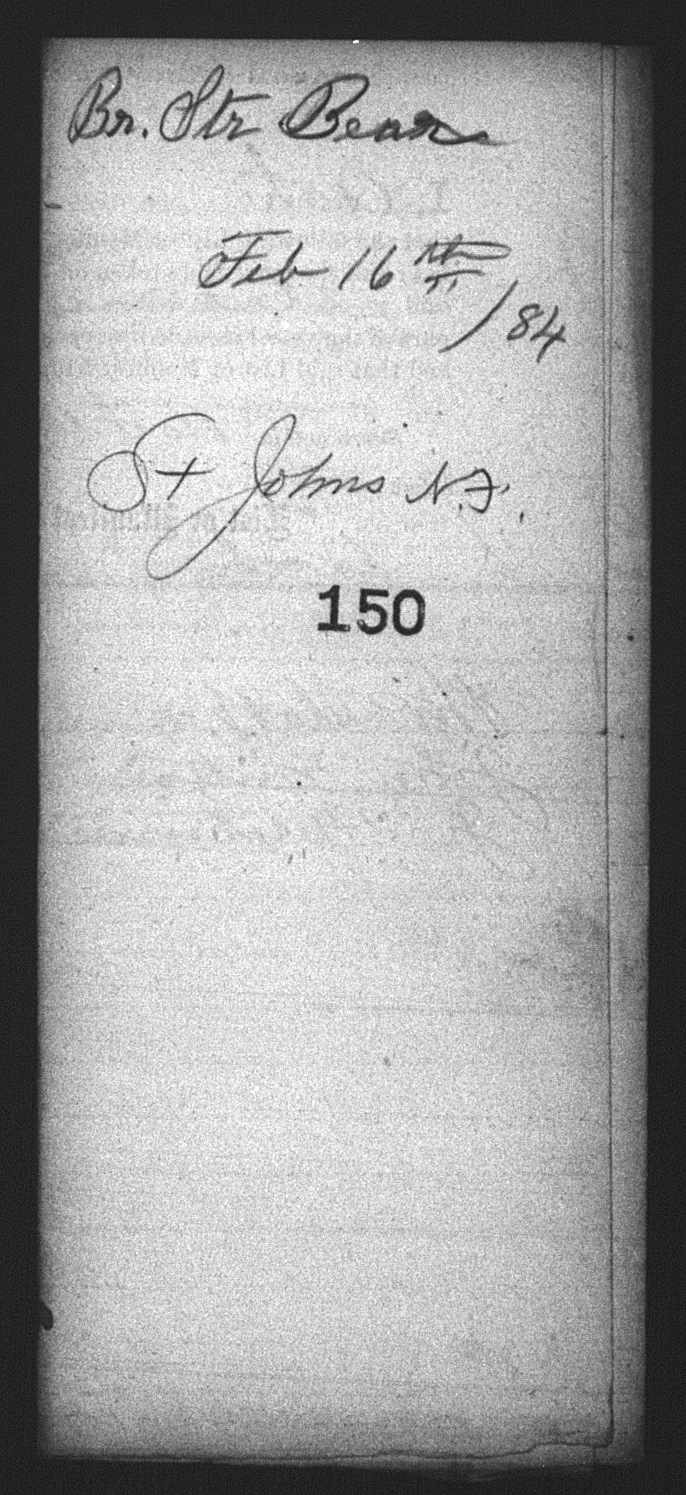 Br. Str Bear
Feb 16th /84
St Johns N.F.
150